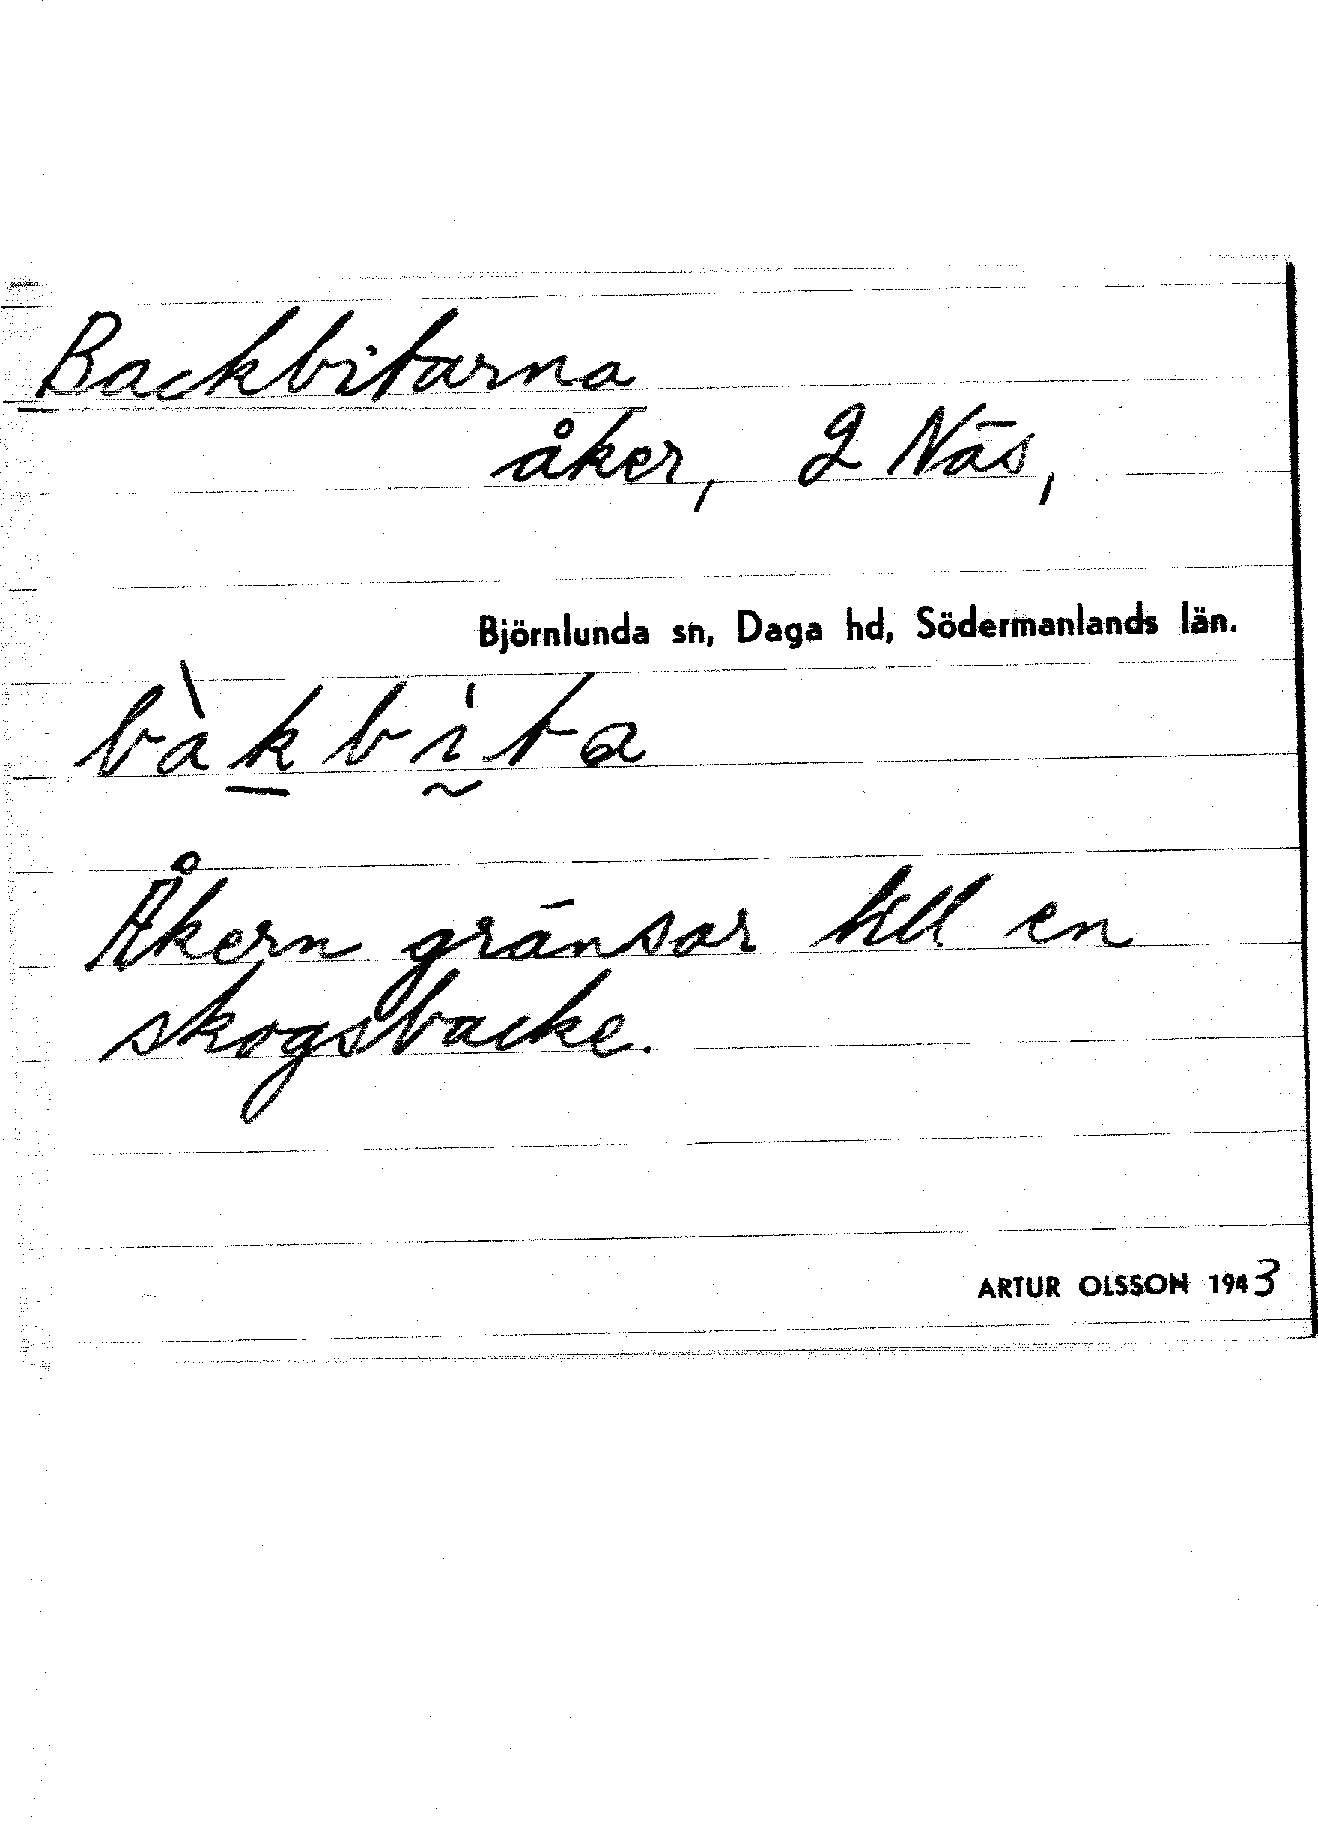 Backbitarna
åker, 2 Näs,
Björnlunda sn, Daga hd, Södermanlands län.
bàk bḭta
Åkern gränsar till en
skogsbacke.
ARTUR OLSSON 1943